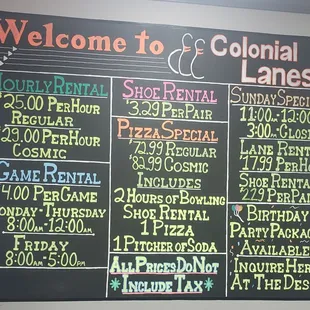 Welcome to
Colonial
Lanes
Hourly Rental
$25.00 Per Hour
Regular
$29.00 Per Hour
Cosmic
Game Rental
4.00 Per Game
Monday-Thursday
8:00am-12:00am
Friday
8:00am-5:00pm
Shoe Rental
$3.29 Per Pair
Pizza Special
$72.99 Regular
$82.99 Cosmic
Includes
2 Hours of Bowling
Shoe Rental
1 Pizza
1 Pitcher of Soda
All Prices Do Not
*Include Tax*
Sunday Special
11:00-12:00
3:00-Close
Lane Rental
17.99 Per Hour
Shoe Rental
2.29 Per Pair
Birthday
Party Package
Available
Inquire Here
At The Desk